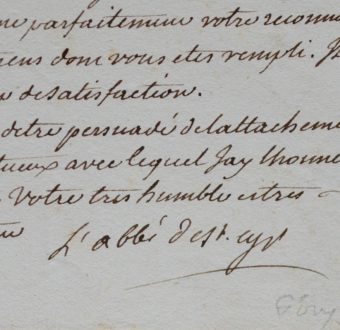 parfaitement votre reconn
dont vous etes rempli. J
de satisfaction.
detre persuadé de lattacheme
tueux avec lequel Jay lhonne
Votre tres humble et tres
L'abbé de St. Cyr